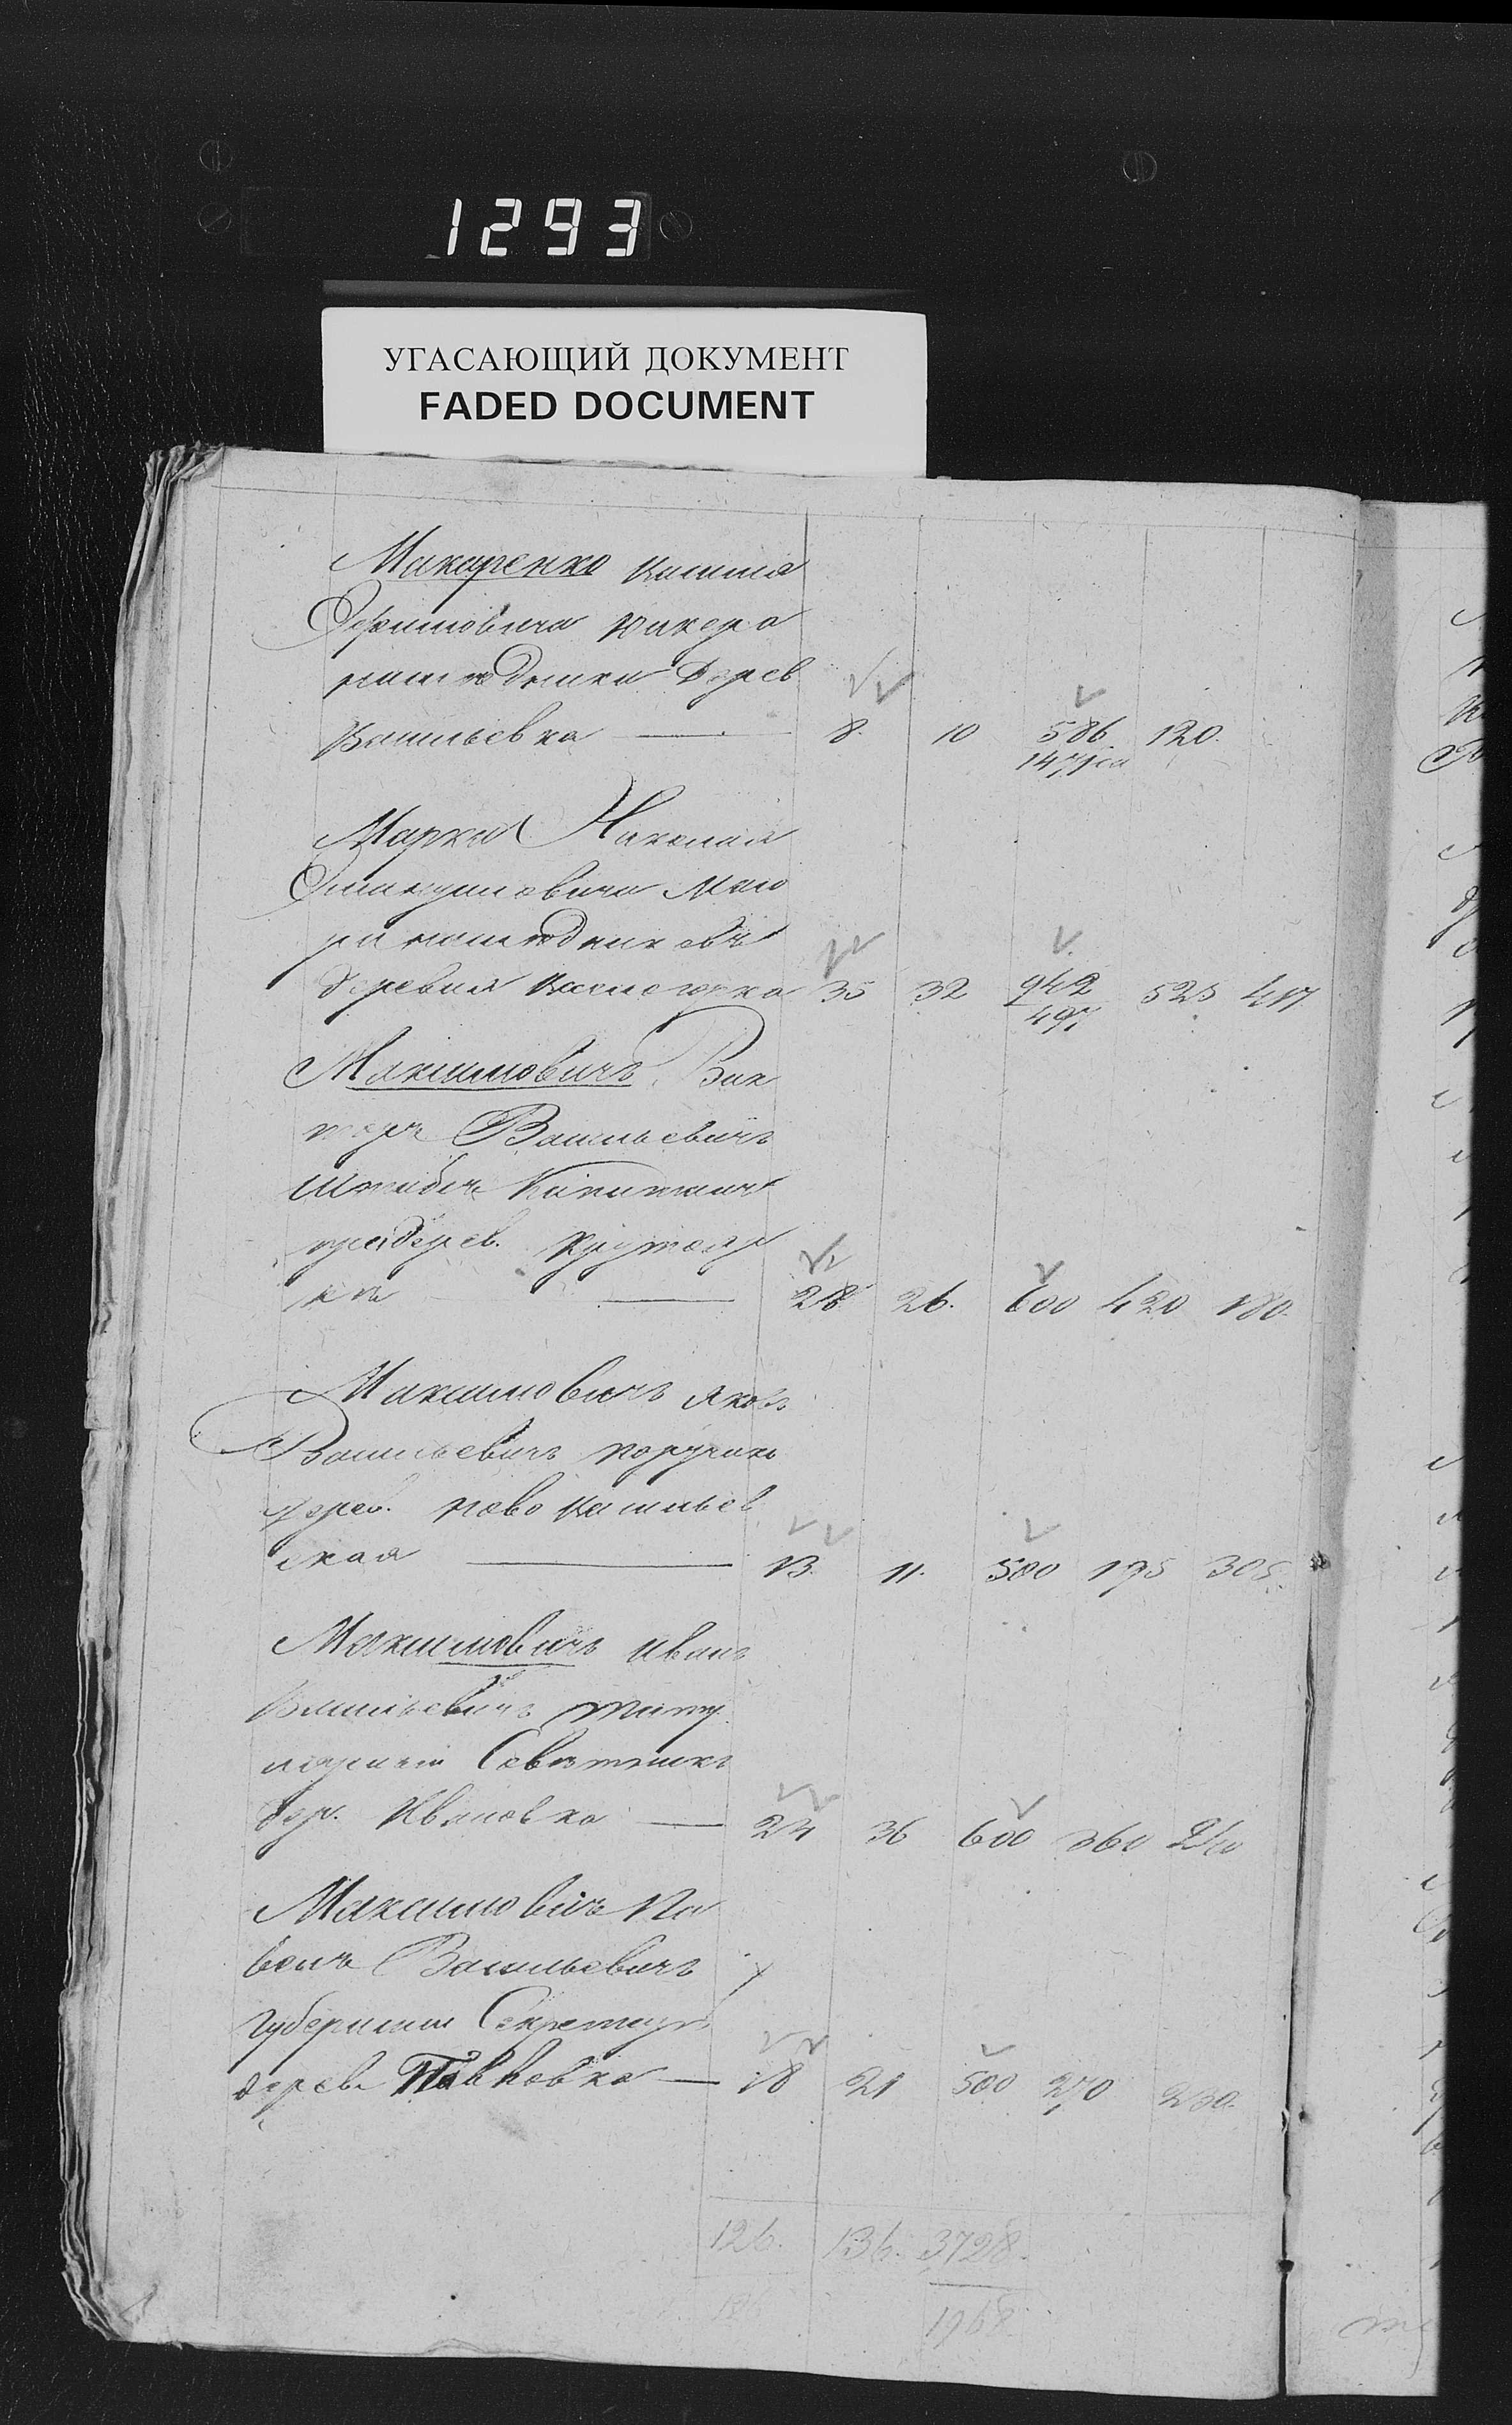 1293
УГАСАЮЩИЙ ДОКУМЕНТ
FADED DOCUMENT
Макаренко
Ефимовича юнкера
Дерев
Васильевка — 8. 10 586. 120.
147
Марка Николая
деревня 35 32 942 525 417
497
Максимовичъ Вик
торъ Васильевичъ
Штабсъ Капитанъ
дерев. Крутояр
ка — 28 26. 600 420 180.
Максимовичъ Яковъ
Васильевичъ поручикъ
дерев. ново Васильев
ская — 13. 11. 500 195 305.
Максимовичъ Иванъ
Васильевичъ титу
лярный Советникъ
дер. Ивановка — 24 36 600 360 240
Максимовичъ Па
велъ Васильевичъ
Губернскій Секретарь
дерев. Павловка — 18 21 500 270 230.
126. 136. 3728.
1968.